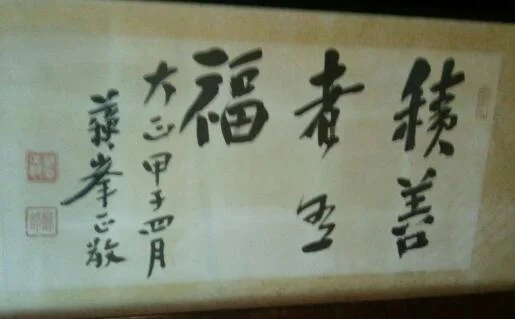 積善
者
福
大正甲子四月
蘇峯正敬